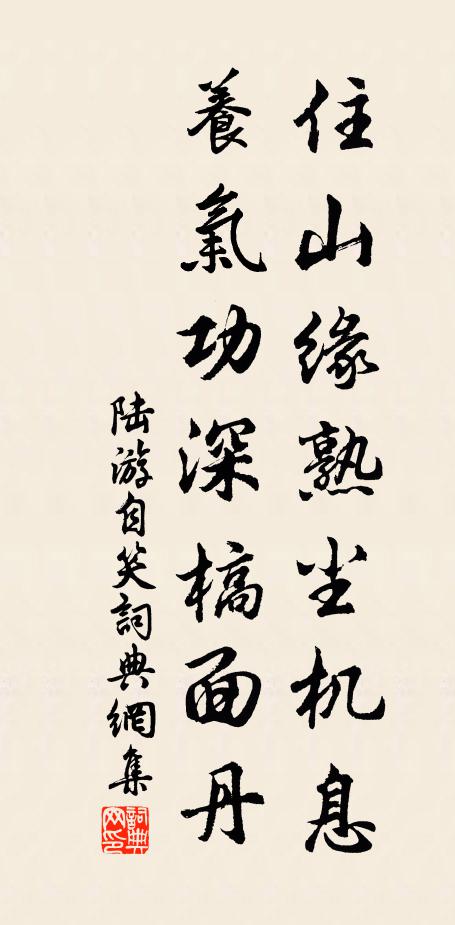 住山緣熟尘机息
養氣功深槁面丹
陆游自笑詞典網集
詞典网印